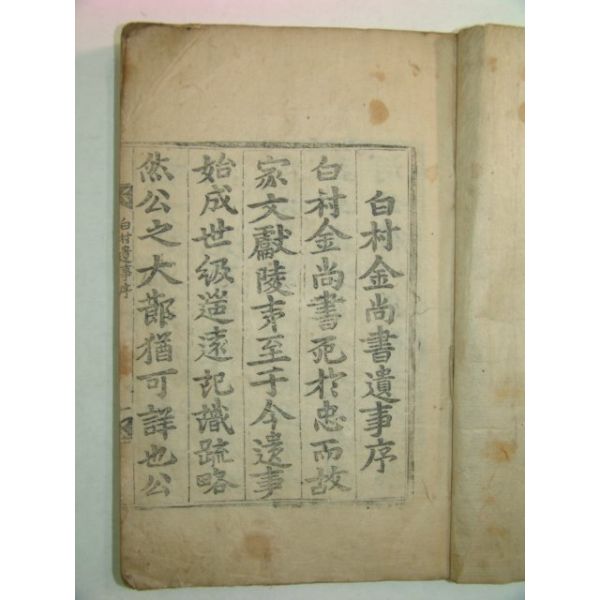 白村金尚書遺事序
白村金尚書死於忠而故
家文獻陵夷至于今遺事
始成世級逖遠記識䟽略
然公之大節猶可詳也公
白村遺事序
一